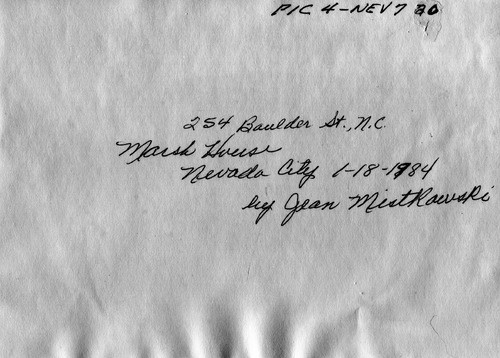 PIC 4-NEV 7 20
254 Boulder St., N.C.
Marsh House
Nevada City 1-18-1984
by Jean Mistkowski